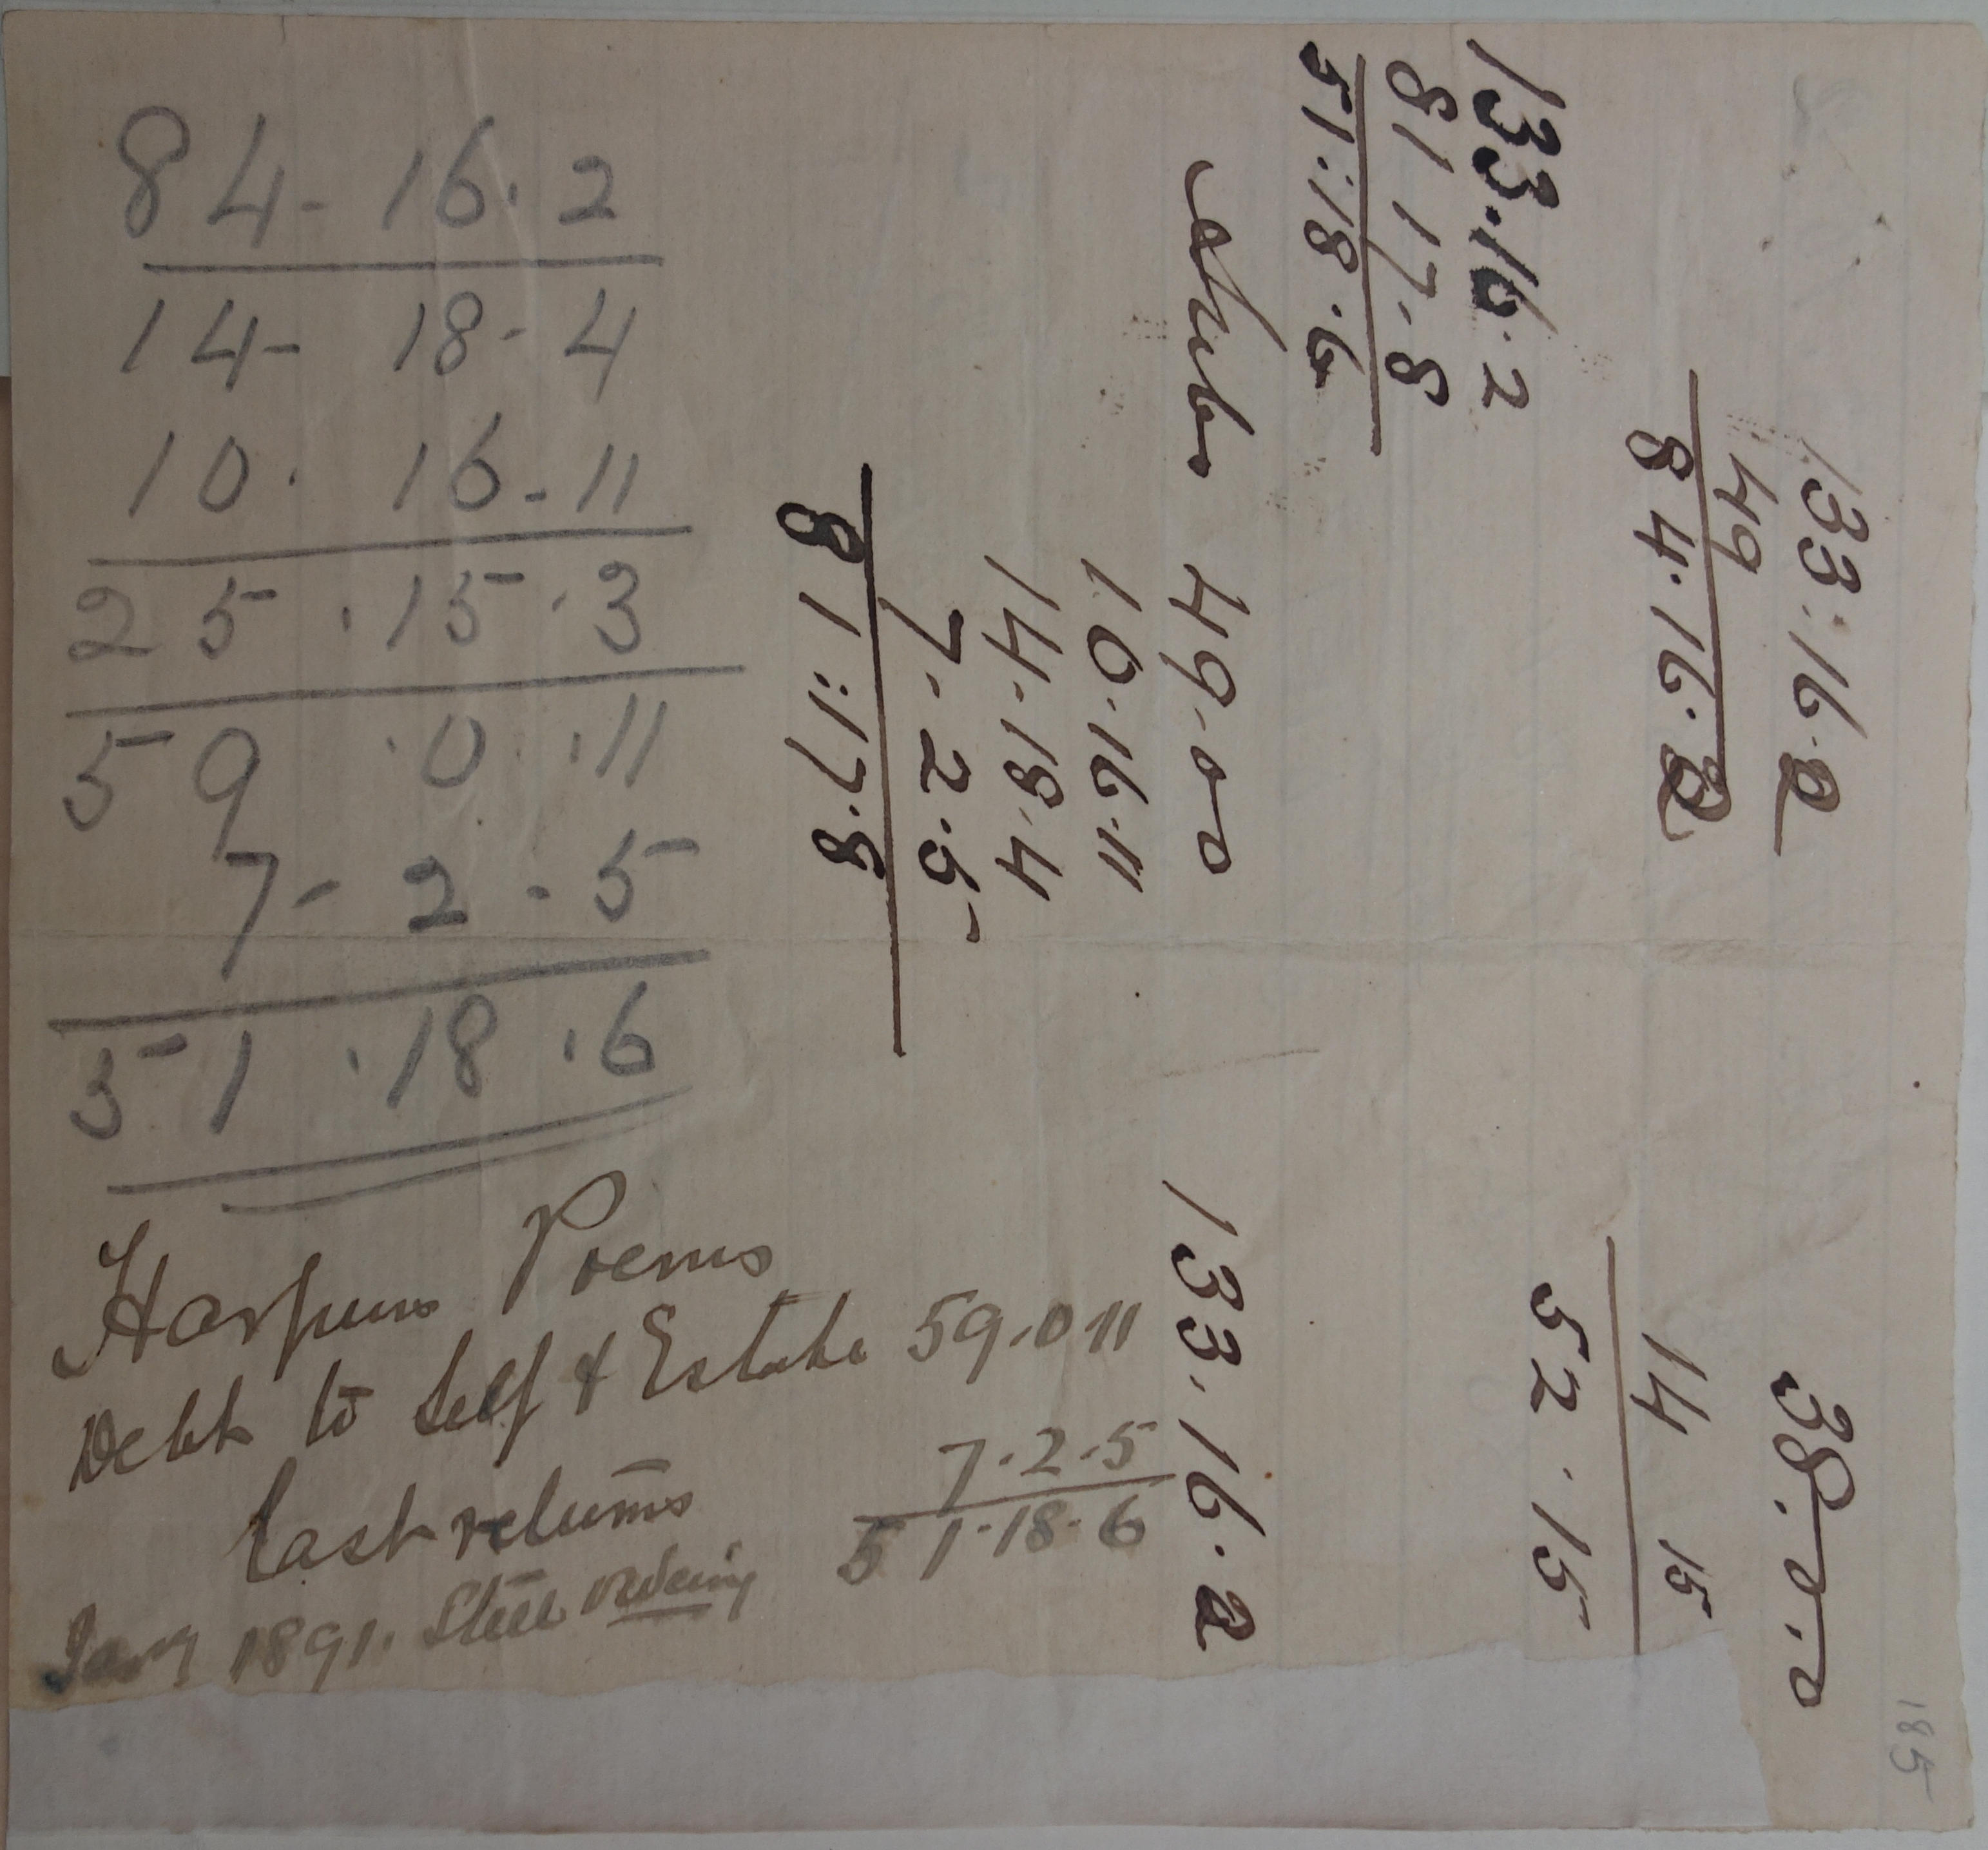 84- 16. 2
14- 18- 4
10. 16-11
25 .15.3
59 .0.11
7- 2-5
51 .18.6
Harpurs Poems
Debt to Self & Estate 59.0 11
7.2.5
51.18.6
Jany 1891. Still
133:16.2
49
84.16.2
133.16.2
81 17.8
51:18.6
Subs 49.00
10.16.11
14.18.4
7.2.5
81:17.8
38.0.0
14 15
52.15
133.16.2
185